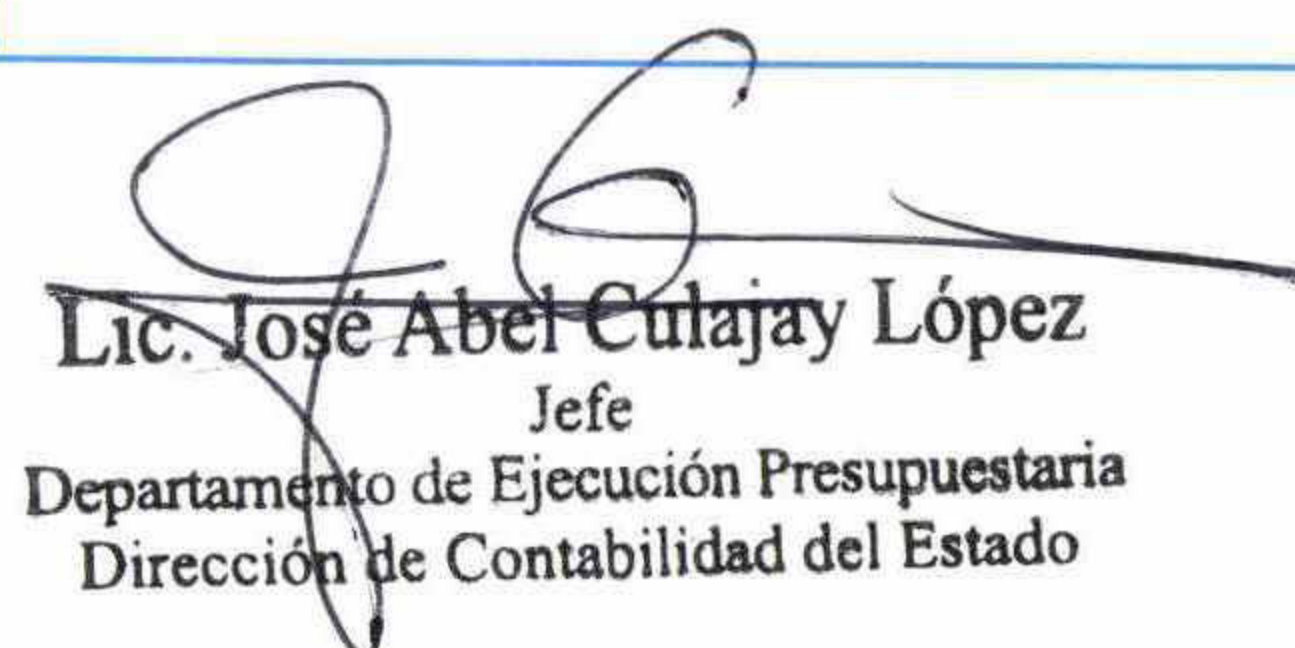 Lic. José Abel Culajay López
Jefe
Departamento de Ejecución Presupuestaria
Dirección de Contabilidad del Estado